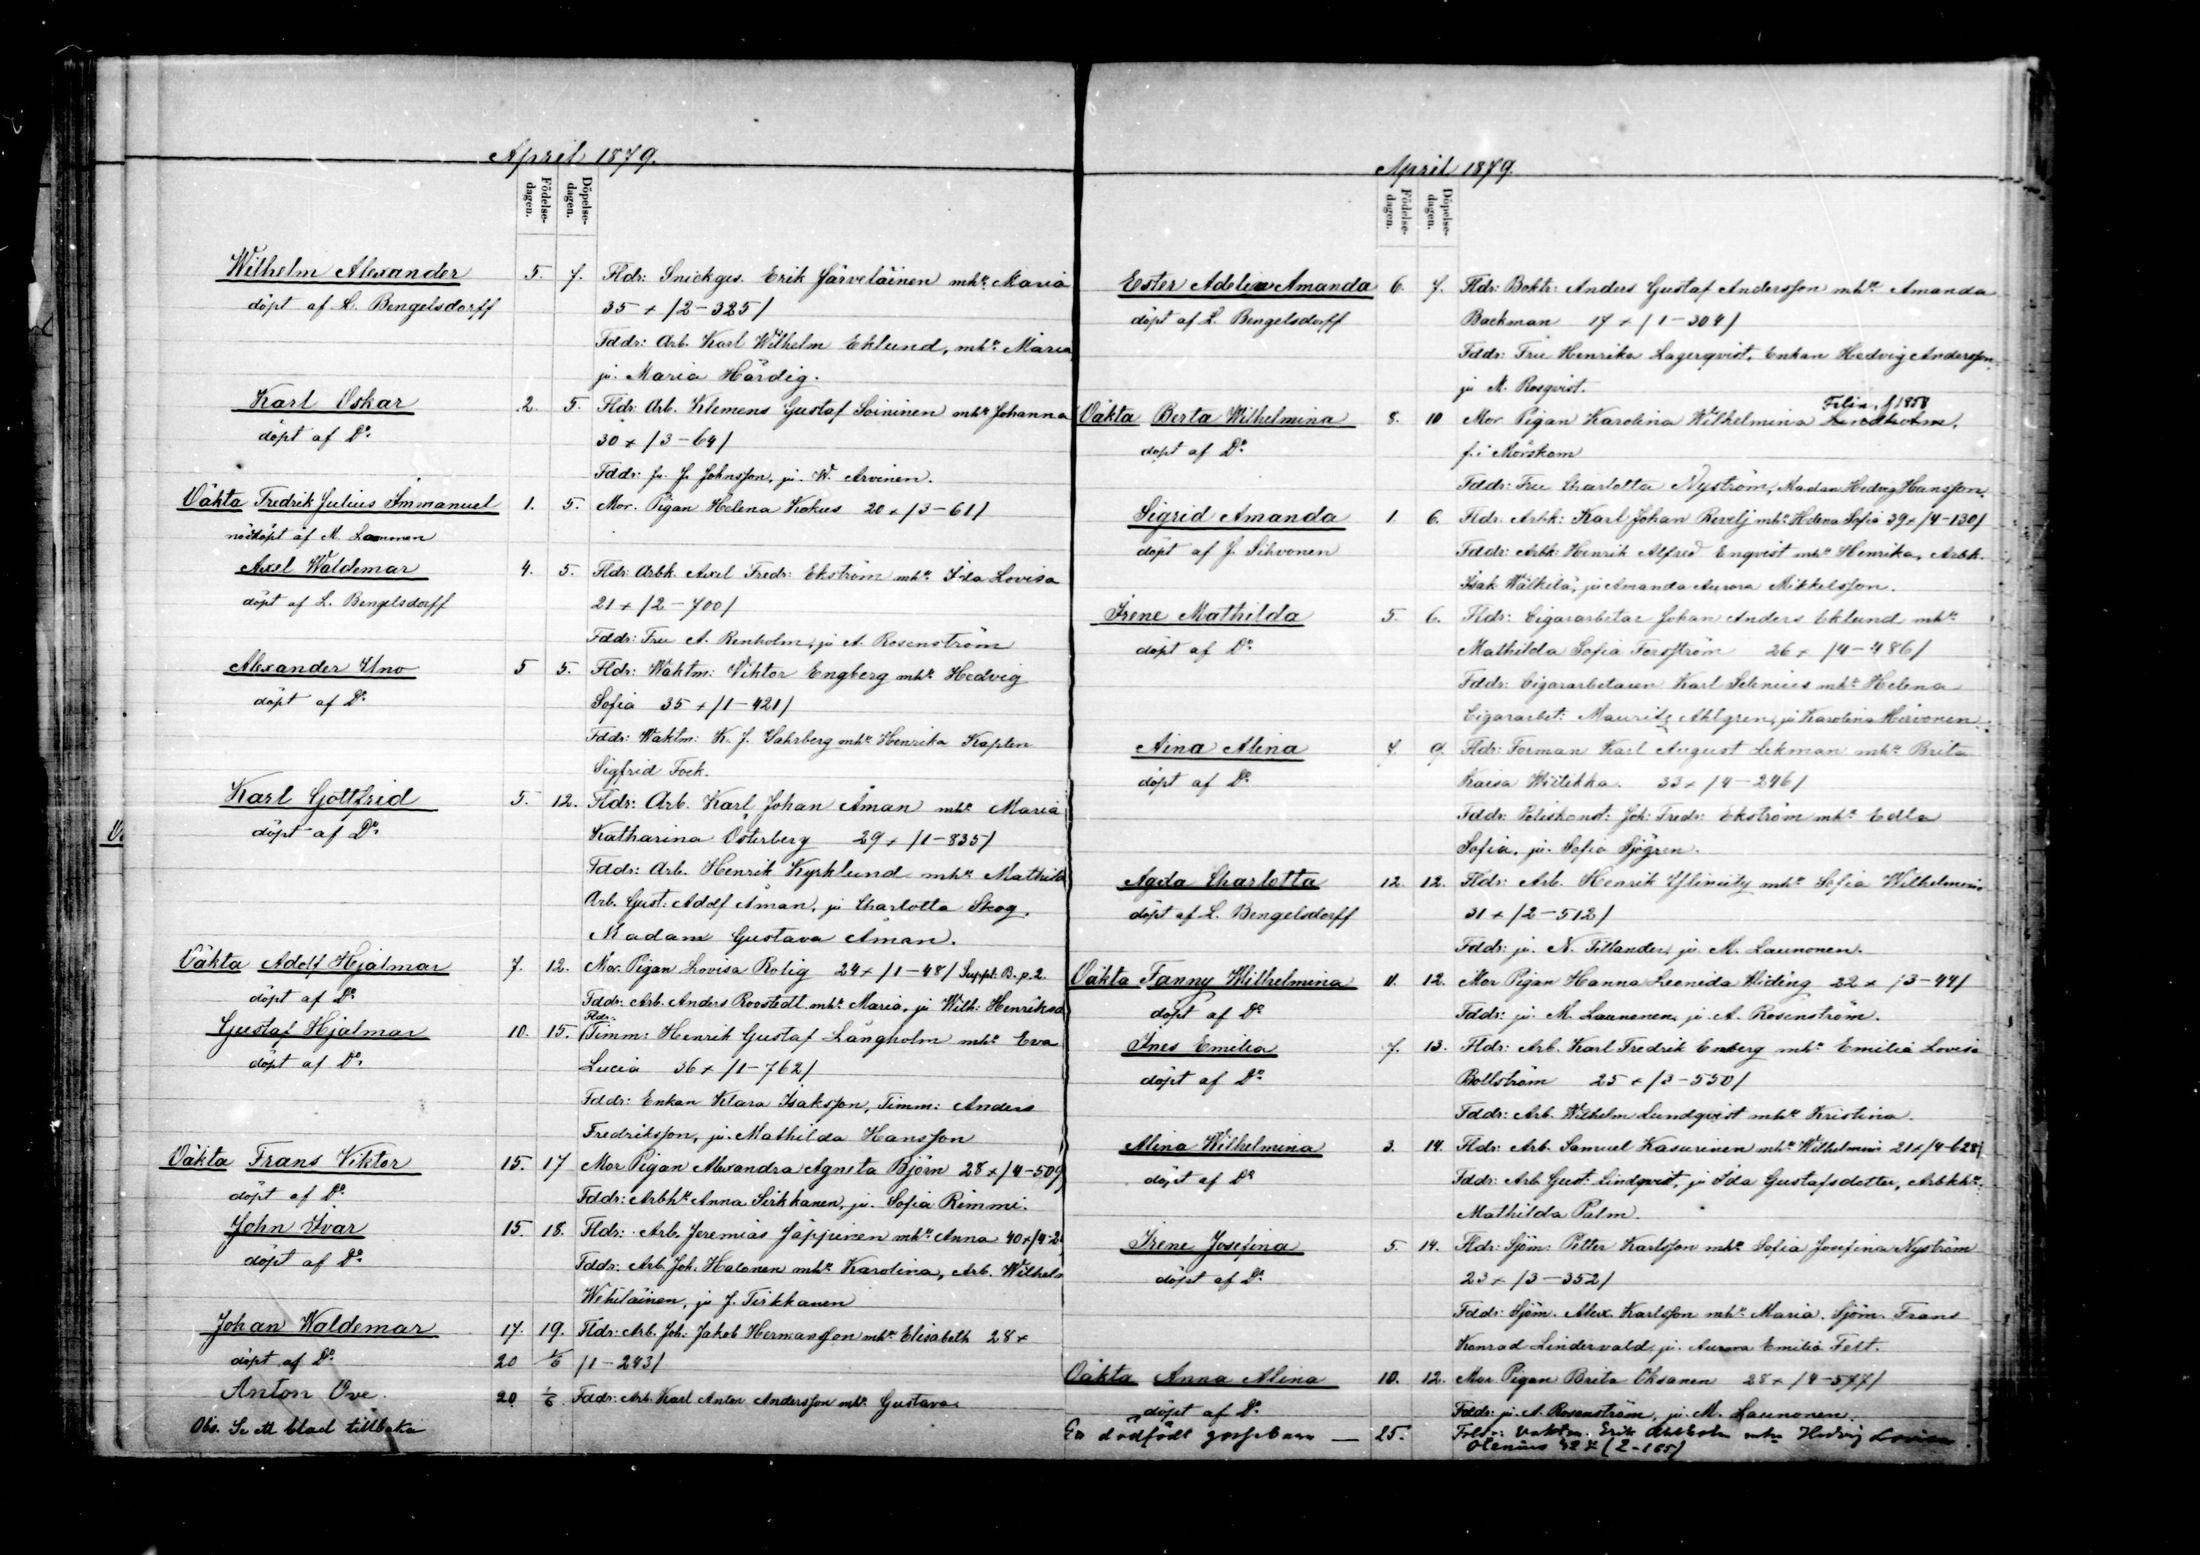 April 1879.
Födelse-dagen. Döpelse-dagen.
Wilhelm Alexander 5. 7. Fldr: Snickges. Erik Järveläinen mhu Maria
döpt af L. Bengelsdorff 35 + /2-325/
Fddr: Arb. Karl Wilhelm Eklund, mhu Maria
ju. Maria Härdig.
Karl Oskar 2. 5. Fldr: Arb. Klemens Gustaf Soininen mhu Johanna
döpt af Do 30 + /3-64/
Fddr: fr. J. Johnsson, ju. W. Arvinen.
Oäkta Fredrik Julius Immanuel 1. 5. Mor. Pigan Helena Kokus 20 + /3-61/
nöddöpt af M. Launonen
Axel Waldemar 4. 5. Fldr: Arbk. Axel Fredr: Ekström mhu Ida Lovisa
döpt af L. Bengelsdorff 21 + /2-700/
Fddr: Fru A. Renholm, ju A. Rosenström
Alexander Uno 5 5. Fldr: Waktm: Viktor Engberg mhu Hedvig
döpt af Do Sofia 35 + /1-421/
Fddr: Waktm: K. J. Sahrberg mhu Henrika Kapten
Sigfrid Fock.
Karl Gottfrid 5. 12. Fldr: Arb. Karl Johan Åman mhu Maria
döpt af Do Katharina Österberg 29 + /1-835/
Fddr: Arb. Henrik Kyrklund mhu Mathild
Arb. Gust: Adolf Åman, ju Charlotta Skog,
Madam Gustava Åman.
Oäkta Adolf Hjalmar 7. 12. Mor. Pigan Lovisa Rolig 24 + /1-48/ Suppl: B. p. 2.
döpt af Do Fddr: Arb. Anders Roostedt mhu Maria, ju Wilh: Henriksd
Gustaf Hjalmar 10. 15. Fldr: Timm: Henrik Gustaf Långholm mhu Eva
döpt af Do Lucia 36 + /1-762/
Fddr: Enkan Klara Isaksson, Timm: Anders
Fredriksson, ju. Mathilda Hansson
Oäkta Frans Viktor 15. 17 Mor Pigan Alexandra Agneta Björn 28 + /4-509
döpt af Do Fddr: Arbhu Anna Sirkkanen, ju. Sofia Rimmi.
John Ivar 15. 18. Fldr: Arb. Jeremias Jäppinen mhu Anna 40 + /4-2
döpt af Do Fddr: Arb. Joh. Halonen mhu Karolina, Arb. Wilhelm
Wehiläinen, ju J. Tirkkanen
Johan Waldemar 17. 19. Fldr: Arb. Joh: Jakob Hermansson mhu Elisabeth 28 +
döpt af Do 20 1/6 /1-243/
Anton Ove. 20. 1/6 Fddr: Arb. Karl Anton Andersson mhu Gustava.
Obs. Se ett blad tillbaka
April 1879.
Födelse-dagen. Döpelse-dagen.
Ester Adelina Amanda 6. 7. Fldr: Bokh: Anders Gustaf Andersson mhu Amanda
döpt af L. Bengelsdorff Backman 17 + /1-304/
Fddr: Fru Henrika Lagerqvist, Enkan Hedvig Andersson,
ju M. Rosqvist.
Oäkta Berta Wilhelmina 8. 10 Mor Pigan Karolina Wilhelmina Felin, f 1858
döpt af Do f. i Mörskom
Fddr: Fru Charlotta Nyström, Madan Hedvig Hansson.
Sigrid Amanda 1. 6. Fldr. Arbk: Karl Johan Revelj mhu Helena Sofia 39 + /4-130/
döpt af J. Sihvonen Fddr: Arbk: Henrik Alfred Enqvist mhu Henrika, Arbk.
Isak Wälkilä, ju Amanda Aurora Mikkelsson.
Irene Mathilda 5. 6. Fldr: Cigararbetar Johan Anders Eklund mhu
döpt af Do Mathilda Sofia Forsström 26 + /4-486/
Fddr: Cigararbetaren Karl Selenius mhu Helena
Cigararbet: Mauritz Ahlgren, ju Karolina Hirvonen.
Aina Alina 7. 9. Fldr: Forman Karl August Ekman mhu Brita
döpt af Do Kaisa Wiilikka. 33 + /4-246/
Fddr: Poliskonst: Joh: Fredr: Ekström mhu Edla
Sofia, ju. Sofia Sjögren.
Agda Charlotta 12. 12. Fldr: Arb. Henrik Ylinity mhu Sofia Wilhelmina
döpt af L. Bengelsdorff 31 + /2-512/
Fddr: ju. N. Titlander, ju. M. Launonen.
Oäkta Fanny Wilhelmina 11. 12. Mor Pigan Hanna Leonida Widing 22 + /3-44/
döpt af Do Fddr: ju. M. Launonen, ju. A. Rosenström.
Ines Emilia 7. 13. Fldr: Arb. Karl Fredrik Enberg mhu Emilia Lovisa
döpt af Do Bollström 25 + /3-550/
Fddr: Arb. Wilhelm Lundqvist mhu Kristina.
Alina Wilhelmina 3. 14. Fldr: Arb. Samuel Kasurinen mhu Wilhelmina 21 + /4-628/
döpt af Do Fddr: Arb. Gust: Lindqvist, ju Ida Gustafsdotter, Arbkhu
Mathilda Palm.
Irene Josefina 5. 14. Fldr: Sjöm: Petter Karlsson mhu Sofia Josefina Nyström
döpt af Do 23 + /3-352/
Fddr: Sjöm. Alex. Karlsson mhu Maria. Sjöm. Frans
Konrad Lindervald, ju. Aurora Emilia Felt.
Oäkta Anna Alina 10. 12. Mor Pigan Brita Oksanen 28 + /4-577/
döpt af Do Fddr: ju. A. Rosenström, ju. M. Launonen.
En dödfödt gossebarn — 25. Föld-r: Vaktm. Erik Ahlholm mhu Hedvig Lovisa
Olenius 42 + (2-165)